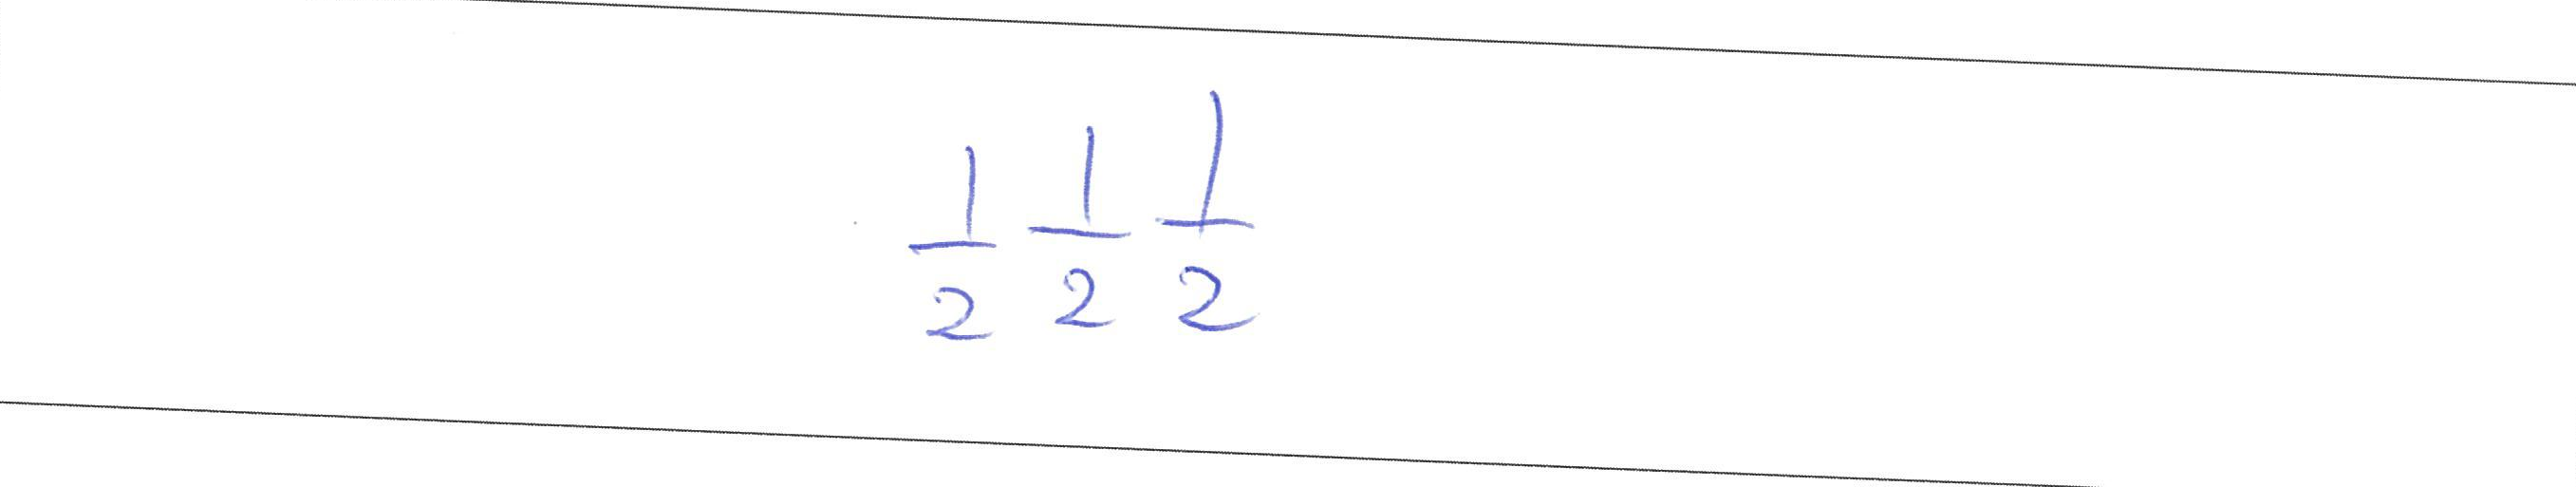 1/2 1/2 1/2